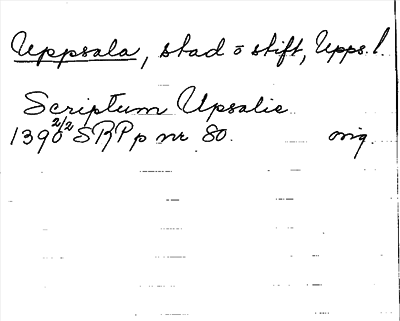 Uppsala, stad o stift, Upps. l.
Scriptum Upsalie
1390 2/2 SRP p nr 80. orig.